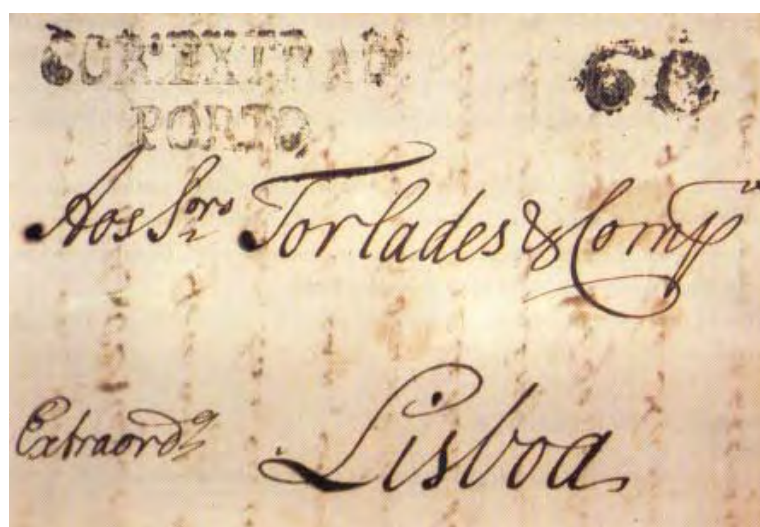 COR.EXTRAO 60
PORTO
Aos Snrs Torlades & Compa
Extraordo Lisboa